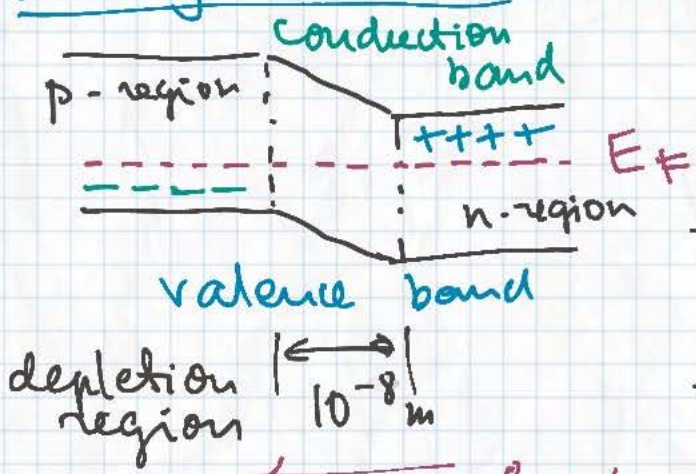 conduction
band
p-region
++++
E_F
n-region
valence band
depletion
region
10⁻⁸ m